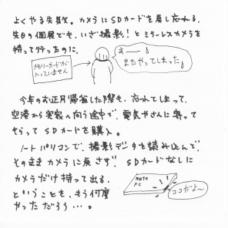 よくやる失敗。カメラにSDカードを差し忘れる。
先日の個展でも、いざ撮影!とミラーレスカメラを
持って行ったのに、
メモリーカードが
入っていません
あー、
またやってしまった
今年のお正月帰省した際も、忘れてしまって、
空港から実家へ向う途中で、電気やさんに寄って
もらってSDカードを購入。
ノートパソコンで、撮影データを読み込んで、
そのままカメラに戻さず、SDカードなしに
カメラだけ持って出る、
ということを、もう何度
やっただろう…。
NOTE
PC
ココだよ〜